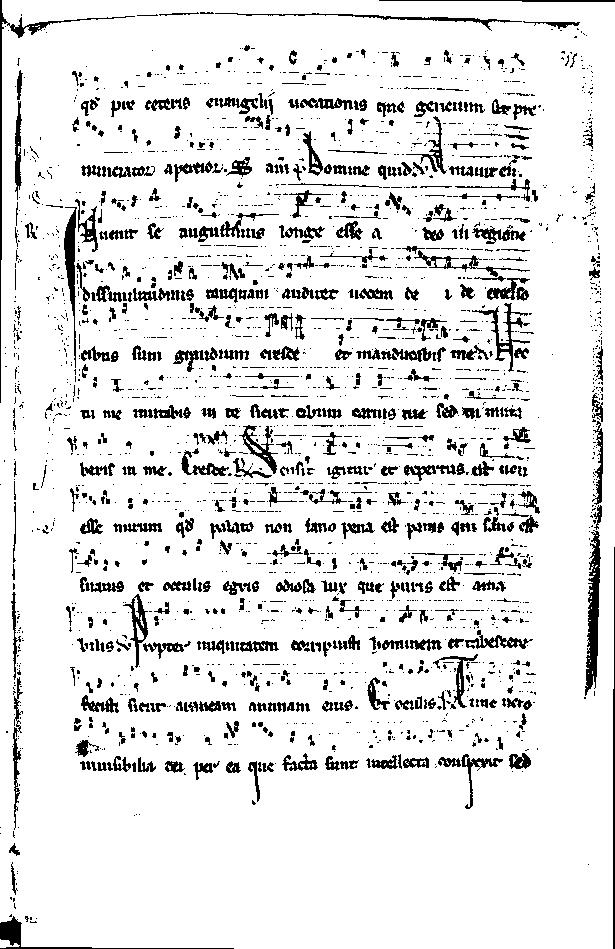 qd pre ceteris euangelij uocationis que gencium sit pre
nunciator apercior. am Domine quid.
nuenit se augustinus longe esse a deo in regione
dissimilitudinis tanquam audiret uocem de i de excelso
cibus sum grandium cresce et manducabis me. Nec
tu me mutabis in te sicut cibum carnis tue sed tu muta
beris in me. Cresce. Sensit igitur et expertus est non
esse mirum qd palato non sano pena est panis qui sano est
suauis et occulis egris odiosa lux que puris est ama
bilis Propter iniquitatem corripuisti hominem et tabescere
fecisti sicut araneam animam eius. Et oculis. Tunc uero
inuisibilia dei per ea que facta sunt intellecta conspexit sed